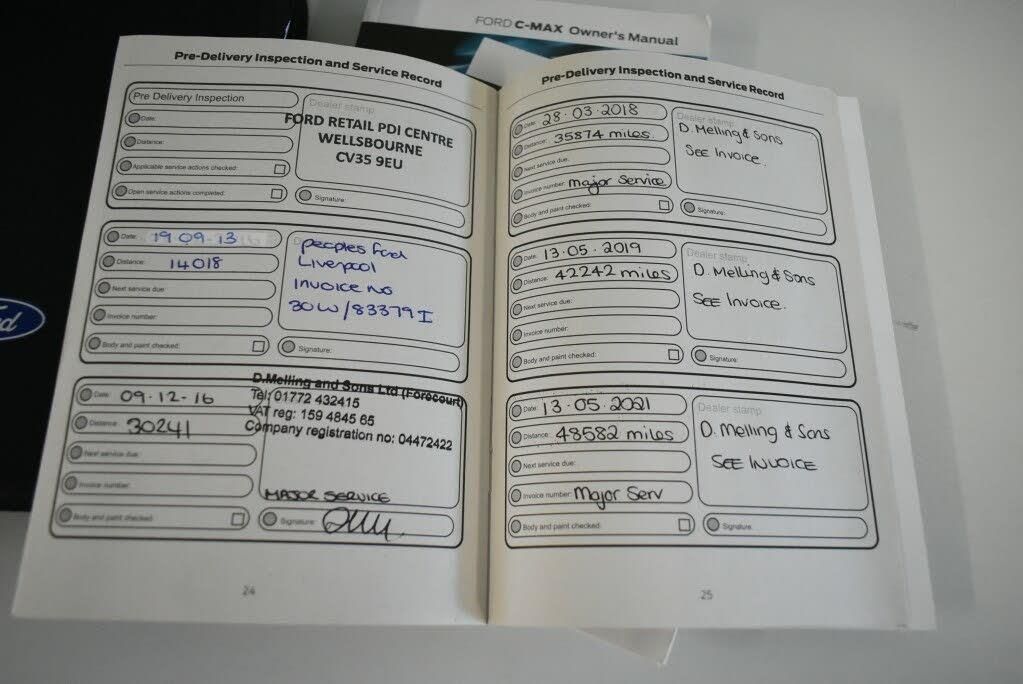 FORD C-MAX Owner's Manual
Pre-Delivery Inspection and Service Record
Pre Delivery Inspection
Date:
Distance:
Applicable service actions checked:
Open service actions completed:
Dealer stamp
FORD RETAIL PDI CENTRE
WELLSBOURNE
CV35 9EU
Signature:
Date: 19 09-13
Distance: 14018
Next service due:
Invoice number:
Body and paint checked:
Peoples Ford
Liverpool
Invoice No
30W/83379I
Signature:
Date: 09-12-16
Distance: 30241
Next service due:
Invoice number:
Body and paint checked:
D.Melling and Sons Ltd (Forecourt)
Tel: 01772 432415
VAT reg: 159 4845 65
Company registration no: 04472422
MAJOR SERVICE
Signature:
24
Pre-Delivery Inspection and Service Record
Date: 28.03.2018
Distance: 35874 miles.
Next service due:
Invoice number: Major Service
Body and paint checked:
Dealer stamp
D. Melling & Sons
SEE Invoice.
Signature:
Date: 13.05.2019
Distance: 42242 miles
Next service due:
Invoice number:
Body and paint checked:
Dealer stamp
D. Melling & Sons
SEE Invoice.
Signature:
Date: 13.05.2021
Distance: 48582 miles
Next service due:
Invoice number: Major Serv
Body and paint checked:
Dealer stamp
D. Melling & Sons
SEE INVOICE
Signature:
25